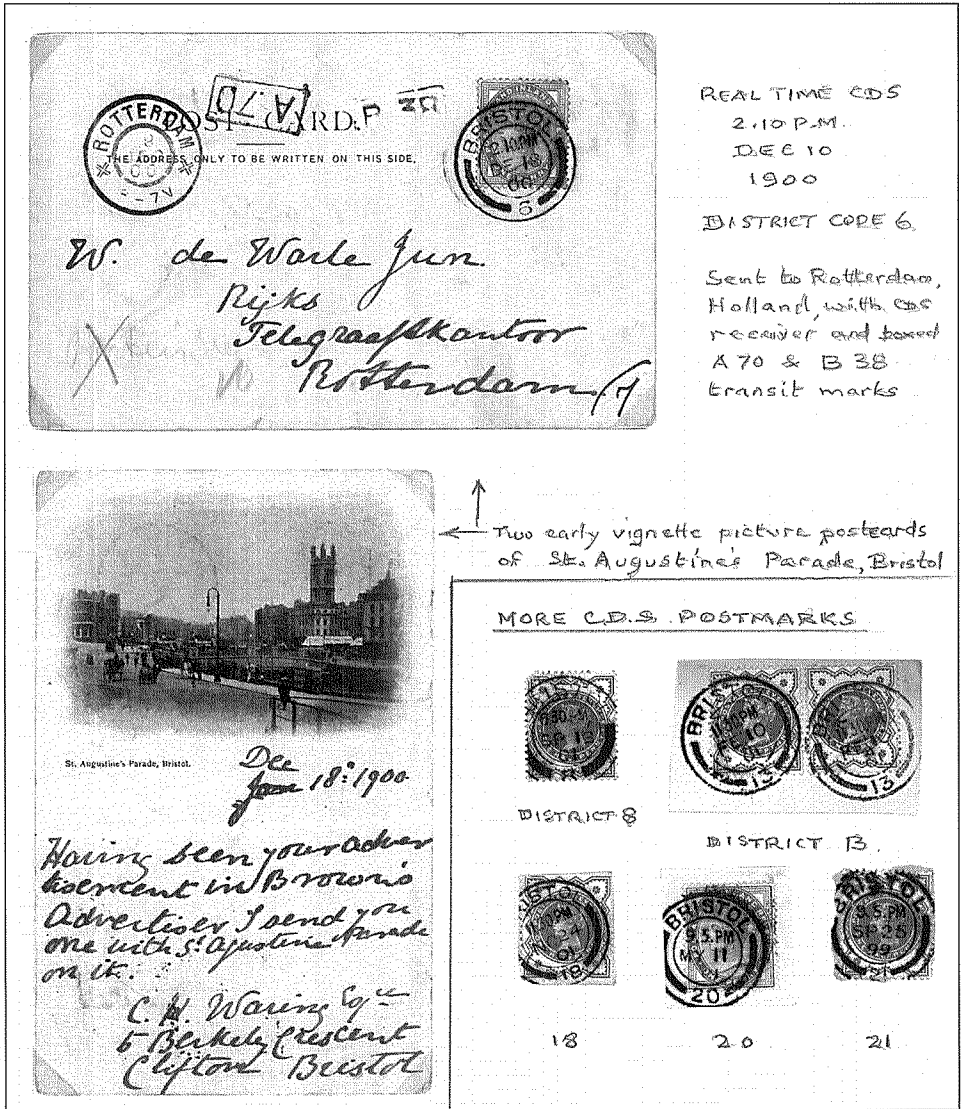 POST CARD.
THE ADDRESS ONLY TO BE WRITTEN ON THIS SIDE.
ROTTERDAM
A 70
BRISTOL
2.10 PM
DE 18
00
6
W. de Warle Jun.
Rijks
Telegraafkantoor
Rotterdam
REAL TIME CDS
2.10 P.M.
DEC 10
1900
DISTRICT CODE 6
Sent to Rotterdam,
Holland, with CDS
receiver and boxed
A 70 & B 38
transit marks
Two early vignette picture postcards
of St. Augustine's Parade, Bristol
St. Augustine's Parade, Bristol.
Dec
June 18: 1900
Having seen your adver
tisement in Brown's
Advertiser I send you
one with St Agustine Parade
on it.
C. H. Waring Esqre
5 Berkeley Crescent
Clifton Bristol
MORE C.D.S. POSTMARKS
DISTRICT 8
BRISTOL
13
13
DISTRICT 13.
18
BRISTOL
9.5.PM
MY 11
20
BRISTOL
9.5.PM
SP 25
99
21
18
20
21